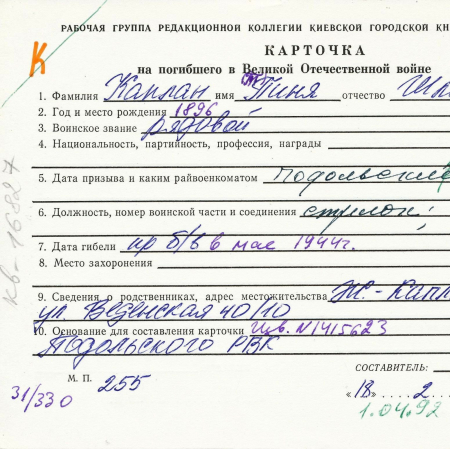 РАБОЧАЯ ГРУППА РЕДАКЦИОННОЙ КОЛЛЕГИИ КИЕВСКОЙ ГОРОДСКОЙ КН
К
КАРТОЧКА
на погибшего в Великой Отечественной войне
1. Фамилия Каплан имя Пиня отчество
2. Год и место рождения 1896
3. Воинское звание рядовой
4. Национальность, партийность, профессия, награды
5. Дата призыва и каким райвоенкоматом Подольским
6. Должность, номер воинской части и соединения стрелок
7. Дата гибели пр б/в в мае 1944г.
8. Место захоронения
9. Сведения о родственниках, адрес местожительства Ж.-Капл
ул. Введенская 40/10
10. Основание для составления карточки Изв. N1415623
Подольского РВК
СОСТАВИТЕЛЬ:
М. П. 255
«18» 2
31/330
1.04.92
кв-16827